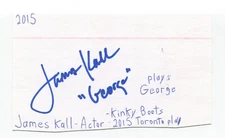 2015
James Kall
"George"
plays
George
-Kinky Boots
James Kall-Actor - 2015 Toronto play